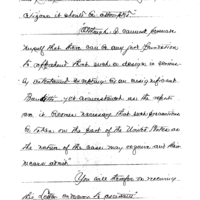 Citizens it should be attempted."
"Although I cannot persuade
myself that there can be any just foundation
to apprehend that such a design is seriously
entertained by
Banditti, yet as the reports
are it becomes necessary that such precautions
be taken on the part of the United States as
the nature of the case may require and their
means admit"
"You will therefore on receiving
this Letter